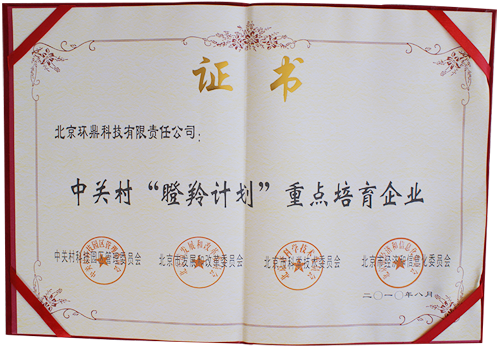 证书
北京环鼎科技有限责任公司：
中关村“瞪羚计划”重点培育企业
中关村科技园区管理委员会 北京市发展和改革委员会 北京市科学技术委员会 北京市经济和信息化委员会
二〇一〇年八月